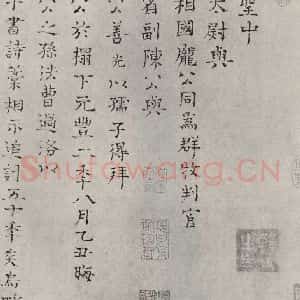 聖中
太尉與
相國龐公同爲群牧判官
省副陳公與
公善光以孺子得拜
公於榻下元豐一年八月乙丑晦
公之孫法曹過洛以
書詩藁相示追 五十年矣
Shufawang.CN